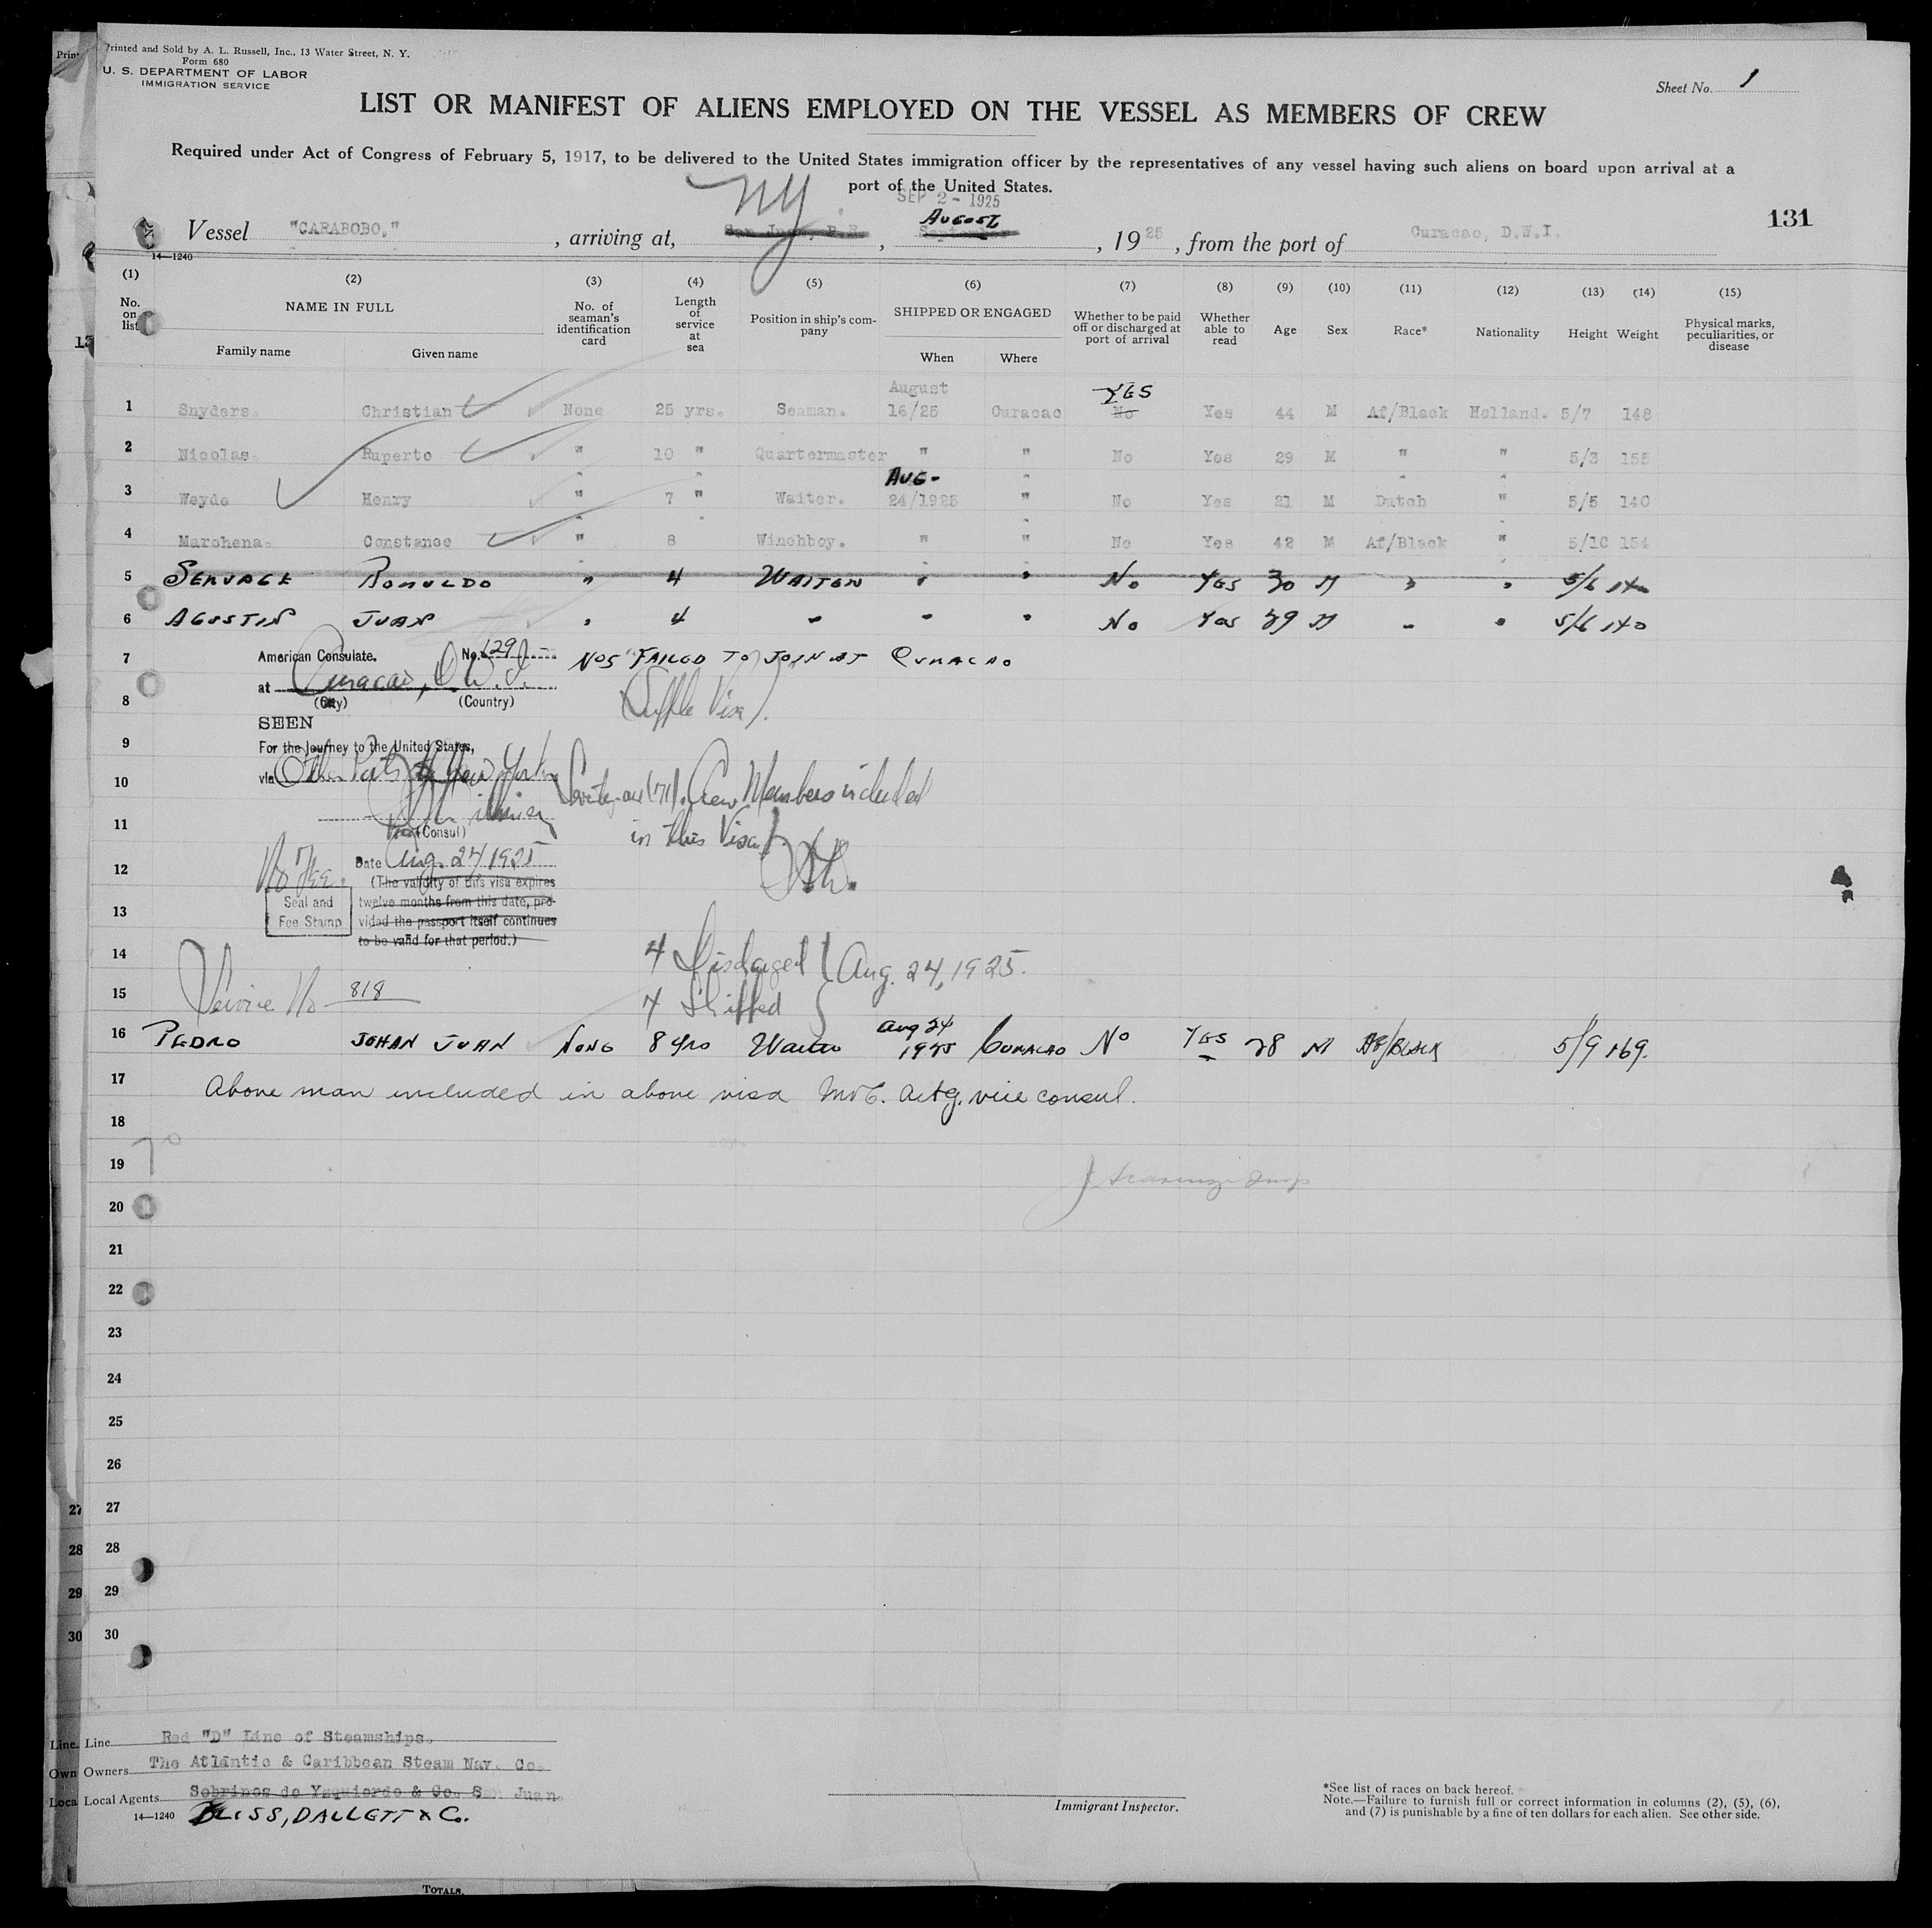 Printed and Sold by A. L. Russell, Inc., 13 Water Street, N. Y.
Form 680
U. S. DEPARTMENT OF LABOR
IMMIGRATION SERVICE
Sheet No. 1
LIST OR MANIFEST OF ALIENS EMPLOYED ON THE VESSEL AS MEMBERS OF CREW
Required under Act of Congress of February 5, 1917, to be delivered to the United States immigration officer by the representatives of any vessel having such aliens on board upon arrival at a
port of the United States.
SEP 2 - 1925
NY
August
131
Vessel "CARABOBO," , arriving at, San Juan, P.R. , September , 1925 , from the port of Curacao, D.W.I.
14—1240
(1) (2) (3) (4) (5) (6) (7) (8) (9) (10) (11) (12) (13) (14) (15)
No. on list
NAME IN FULL
Family name
Given name
No. of seaman's identification card
Length of service at sea
Position in ship's company
SHIPPED OR ENGAGED
When
Where
Whether to be paid off or discharged at port of arrival
Whether able to read
Age
Sex
Race*
Nationality
Height
Weight
Physical marks, peculiarities, or disease
August YES
1 Snyders. Christian None 25 yrs. Seaman. 16/25 Curacao No Yes 44 M Af/Black Holland. 5/7 148
2 Nicolas. Ruperto " 10 " Quartermaster " " No Yes 29 M " " 5/3 155
AUG-
3 Weyde Henry " 7 " Waiter. 24/1925 " No Yes 21 M Dutch " 5/5 140
4 Marchena. Constance " 8 Winchboy. " " No Yes 42 M Af/Black " 5/10 154
5 SERVAGE ROMULDO " 4 WAITER " " No YES 30 M " " 5/6 140
6 AGUSTIN JUAN " 4 " " " No Yes 39 M " " 5/6 140
7 American Consulate. No. 129 No 5 FAILED TO JOIN AT CURACAO
at Curacao, D.W.I.
(City) (Country)
8 (Supple Visa).
SEEN
9 For the journey to the United States,
10 via Other Ports & New York Seventy-one (71) Crew Members included
11 in this Visa.
Vice (Consul)
12 No Fee. Date Aug. 24, 1925
(The validity of this visa expires
13 Seal and Fee Stamp twelve months from this date, provided the passport itself continues
to be valid for that period.)
14 4 Discharged } Aug. 24, 1925.
15 Service No 818 4 Shipped
Aug 24
16 PEDRO JOHAN JUAN NONE 8 yrs Waiter 1925 CURACAO No YES 28 M AF/BLACK 5/9 169.
17 Above man included in above visa MvC. Actg. vice consul.
18
19 70
20
21
22
23
24
25
26
27 27
28 28
29 29
30 30
Line Red "D" Line of Steamships.
Owners The Atlantic & Caribbean Steam Nav. Co.
Local Agents Sobrinos de Yzquierdo & Co. San Juan.
14—1240 BLISS, DALLETT & Co.
Immigrant Inspector.
*See list of races on back hereof.
Note.—Failure to furnish full or correct information in columns (2), (5), (6),
and (7) is punishable by a fine of ten dollars for each alien. See other side.
TOTALS.